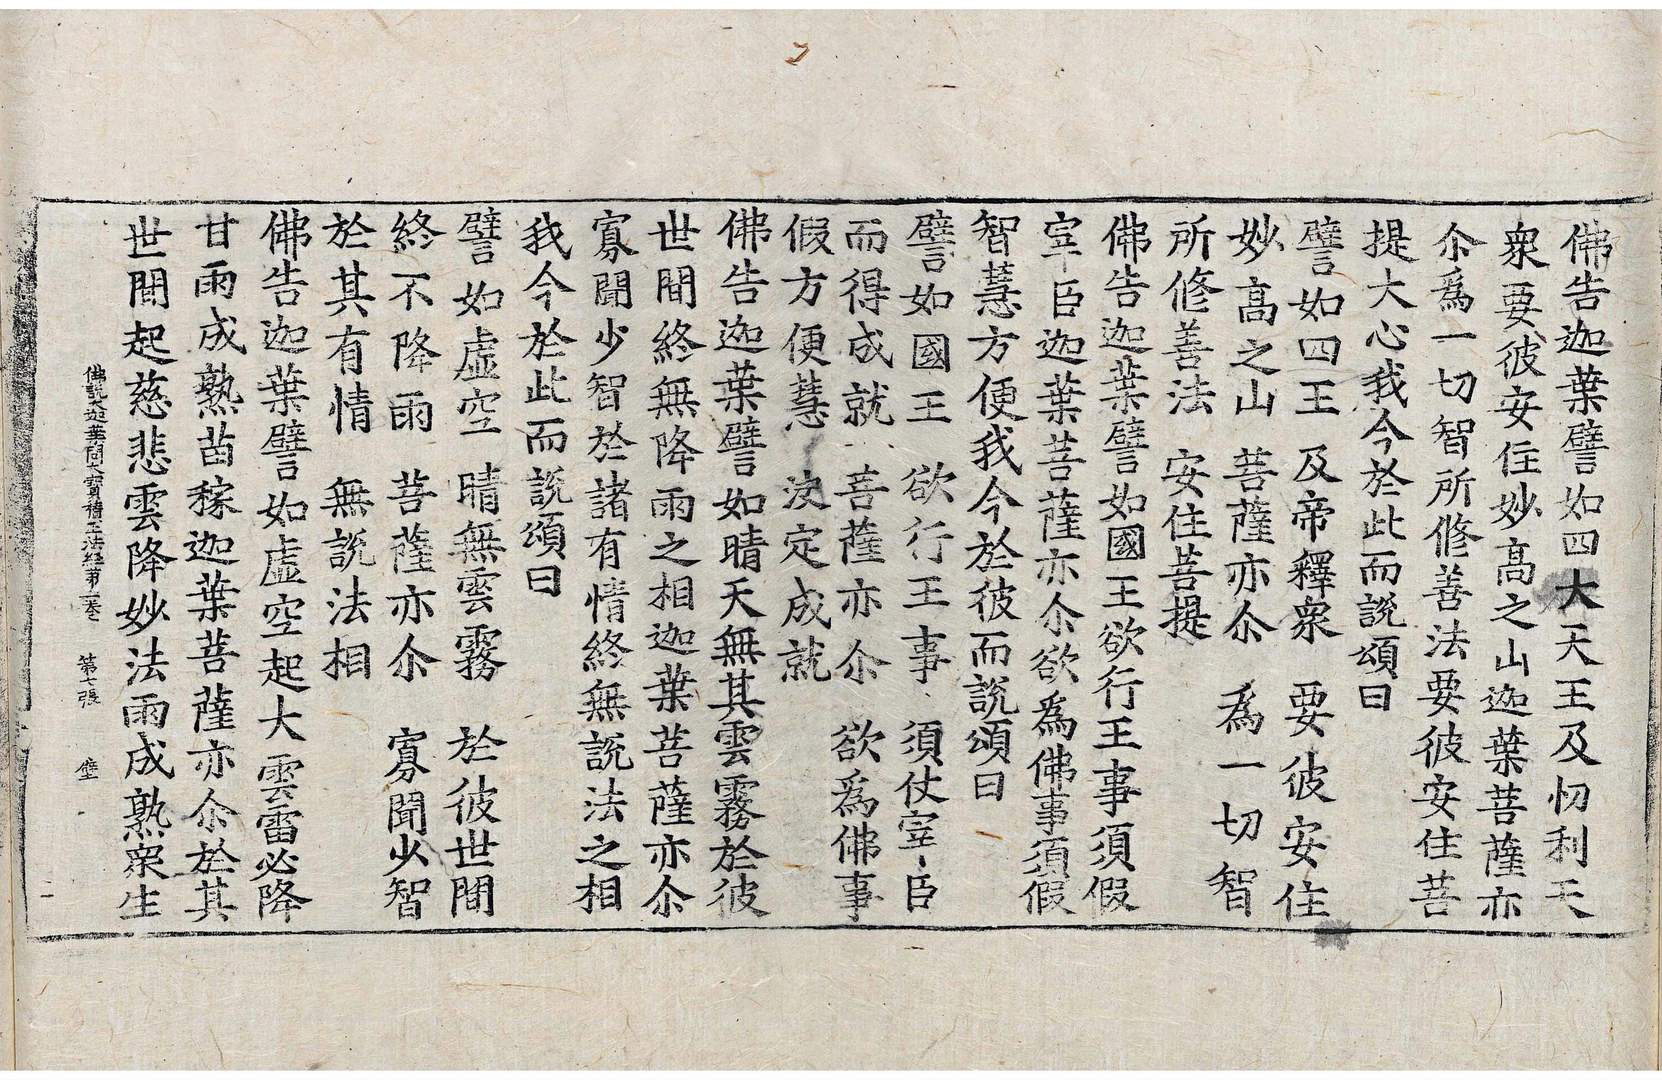 佛告迦葉譬如四大天王及忉利天
衆要彼安住妙高之山迦葉菩薩亦
尒為一切智所修善法要彼安住菩
提大心我今於此而說頌曰
譬如四王 及帝釋衆 要彼安住
妙高之山 菩薩亦尒 為一切智
所修善法 安住菩提
佛告迦葉譬如國王欲行王事須假
宰臣迦葉菩薩亦尒欲為佛事須假
智慧方便我今於彼而說頌曰
譬如國王 欲行王事 須仗宰臣
而得成就 菩薩亦尒 欲為佛事
假方便慧 決定成就
佛告迦葉譬如晴天無其雲霧於彼
世間終無降雨之相迦葉菩薩亦尒
寡聞少智於諸有情終無說法之相
我今於此而說頌曰
譬如虛空 晴無雲霧 於彼世間
終不降雨 菩薩亦尒 寡聞少智
於其有情 無說法相
佛告迦葉譬如虛空起大雲雷必降
甘雨成熟苗稼迦葉菩薩亦尒於其
世間起慈悲雲降妙法雨成熟衆生
佛說大迦葉問大寶積正法經第二卷 第七張 壁